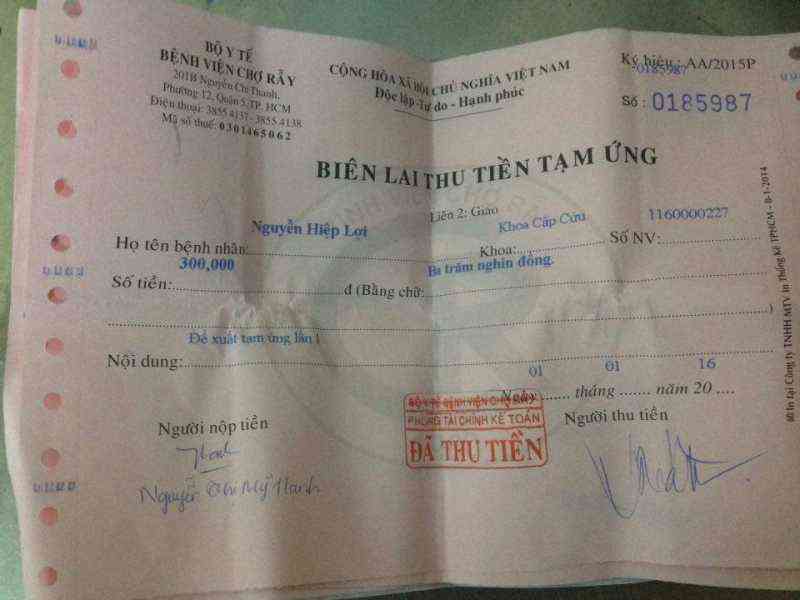 BỘ Y TẾ
BỆNH VIỆN CHỢ RẪY
201B Nguyễn Chí Thanh,
Phường 12, Quận 5, TP. HCM
Điện thoại: 3855 4137- 3855 4138
Mã số thuế: 0301465062
CỘNG HÒA XÃ HỘI CHỦ NGHĨA VIỆT NAM
Độc lập - Tự do - Hạnh phúc
Ký hiệu: AA/2015P
0185987
Số : 0185987
BIÊN LAI THU TIỀN TẠM ỨNG
Liên 2: Giao
Nguyễn Hiệp Lợi Khoa Cấp Cứu 1160000227
Họ tên bệnh nhân: Khoa: Số NV:
300,000 Ba trăm nghìn đồng.
Số tiền: đ (Bằng chữ:
)
Đề xuất tạm ứng lần 1
Nội dung:
01 01 16
Ngày ...... tháng ....... năm 20 ....
Người nộp tiền
Người thu tiền
BỘ Y TẾ BỆNH VIỆN CHỢ RẪY
PHÒNG TÀI CHÍNH KẾ TOÁN
ĐÃ THU TIỀN
Nguyễn Thị Mỹ Hạnh
In tại Công ty TNHH MTV In Thống Kê TPHCM - 8-1-2014